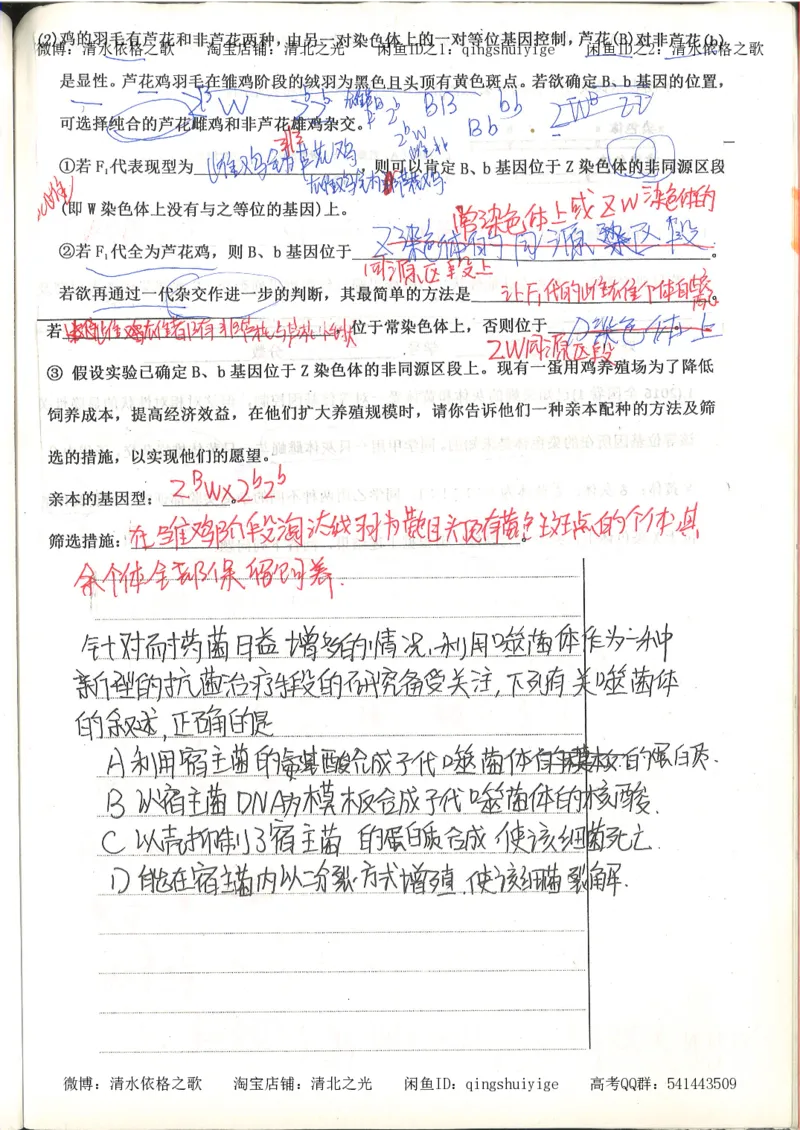 (2)鸡的羽毛有芦花和非芦花两种,由另一对染色体上的一对等位基因控制,芦花(B)对非芦花(b)
微博：清水依格之歌 淘宝店铺：清北之光 闲鱼ID之1：qingshuiyige 闲鱼ID之2：清水依格之歌
是显性。芦花鸡羽毛在雏鸡阶段的绒羽为黑色且头顶有黄色斑点。若欲确定 B、b 基因的位置,
BB bb
可选择纯合的芦花雌鸡和非芦花雄鸡杂交。 Bb
①若 F₁代表现型为 则可以肯定 B、b 基因位于 Z 染色体的非同源区段
(即 W 染色体上没有与之等位的基因)上。 常染色体上或ZW染色体的
②若 F₁代全为芦花鸡，则 B、b 基因位于 Z染色体的同源染区段 。
同源区段上
若欲再通过一代杂交作进一步的判断，其最简单的方法是 让F₁代的雌雄个体自由 。
若 位于常染色体上，否则位于 。
ZW同源区段
③ 假设实验已确定 B、b 基因位于 Z 染色体的非同源区段上。现有一蛋用鸡养殖场为了降低
饲养成本，提高经济效益，在他们扩大养殖规模时，请你告诉他们一种亲本配种的方法及筛
选的措施，以实现他们的愿望。
亲本的基因型： ZᴮW×ZᵇZᵇ 。
筛选措施: 在雏鸡阶段淘汰绒羽为黄色且头顶有黄色斑点的个体其
余个体全部保留饲养.
针对耐药菌日益增多的情况,利用噬菌体作为一种
新型的抗菌治疗手段的研究备受关注,下列有关噬菌体
的叙述,正确的是
A 利用宿主菌的氨基酸合成子代噬菌体的蛋白质.
B 以宿主菌DNA为模板合成子代噬菌体的核酸.
C 以抑制了宿主菌 的蛋白质合成 使该细菌死亡.
D 能在宿主菌内以二分裂方式增殖,使该细菌裂解.
微博：清水依格之歌 淘宝店铺：清北之光 闲鱼ID：qingshuiyige 高考QQ群：541443509